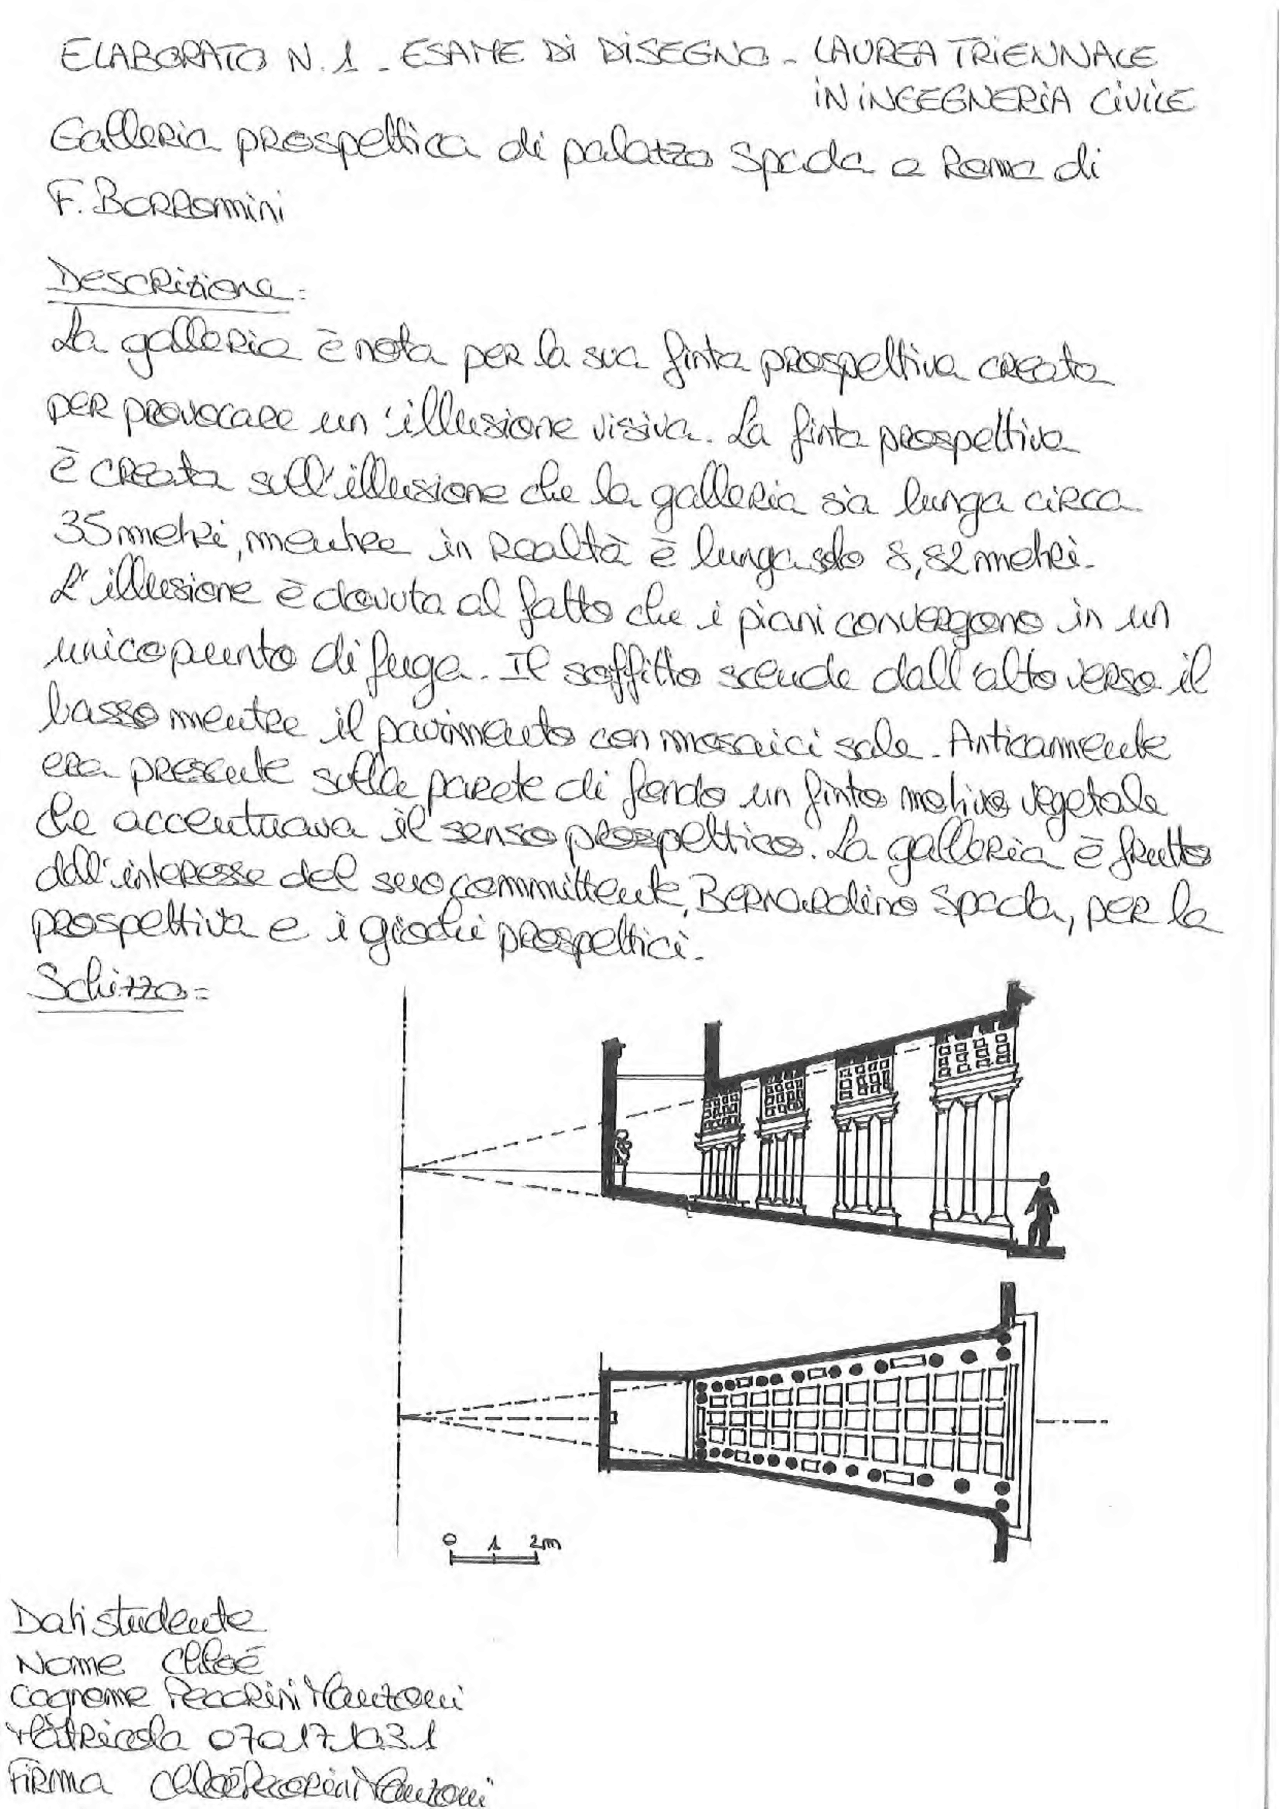 ELABORATO N.1 - ESAME DI DISEGNO - LAUREA TRIENNALE
IN INGEGNERIA CIVILE
Galleria prospettica di palazzo Spada a Roma di
F. Borromini
Descrizione:
La galleria è nota per la sua finta prospettiva creata
per provocare un'illusione visiva. La finta prospettiva
è creata sull'illusione che la galleria sia lunga circa
35 metri, mentre in realtà è lunga solo 8,82 metri.
L'illusione è dovuta al fatto che i piani convergono in un
unico punto di fuga. Il soffitto scende dall'alto verso il
basso mentre il pavimento con mosaici sale. Anticamente
era presente sulla parete di fondo un finto motivo vegetale
che accentuava il senso prospettico. La galleria è frutto
dell'interesse del suo committente, Bernardino Spada, per la
prospettiva e i giochi prospettici.
Schizzo:
0 1 2m
Dati studente
Nome Chloé
Cognome Pecorini Manzoni
Matricola 070171031
Firma Chloé Pecorini Manzoni